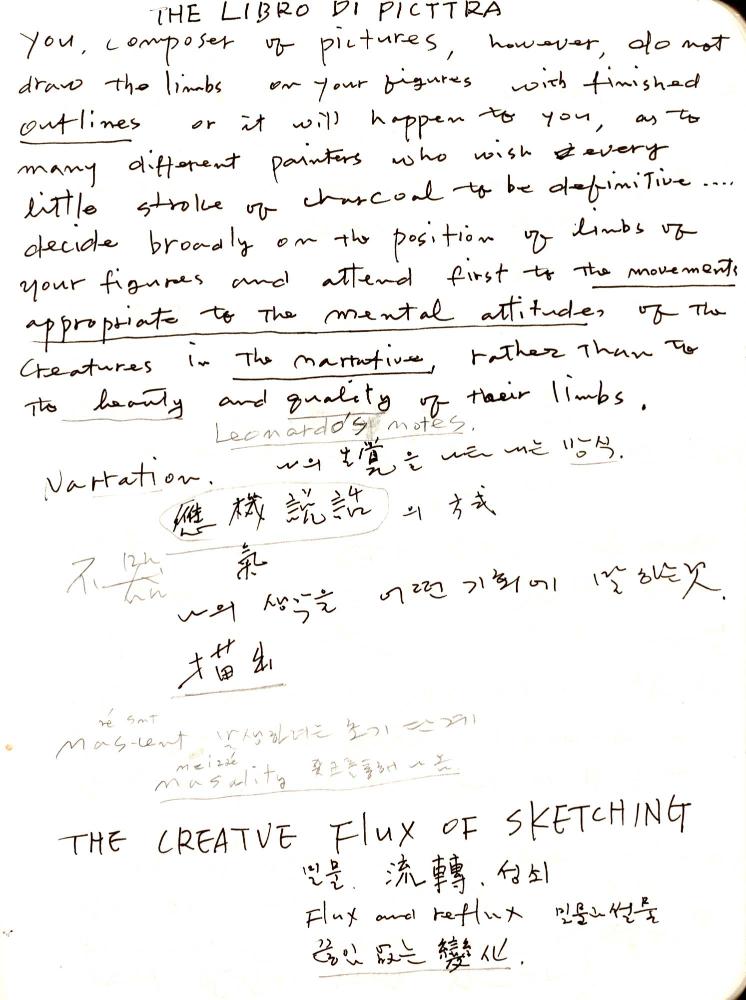 THE LIBRO DI PICTTRA
you, composer of pictures, however, do not
draw the limbs on your figures with finished
outlines or it will happen to you, as to
many different painters who wish every
little stroke of charcoal to be definitive ....
decide broadly on the position of limbs of
your figures and attend first to the movements
appropriate to the mental attitudes of the
creatures in the narrative, rather than to
the beauty and quality of their limbs.
Leonardo's notes.
Narration. 나의 生覺을 나타내는 방식.
應機說話의 方式
不
氣
나의 생각을 어떤 기회에 말하는 것.
描出
nas-cent 발생하려는 초기 단계
nasality
THE CREATVE Flux OF SKETCHING
밀물. 流轉. 성쇠
Flux and reflux 밀물과 썰물
끊임 없는 變化.